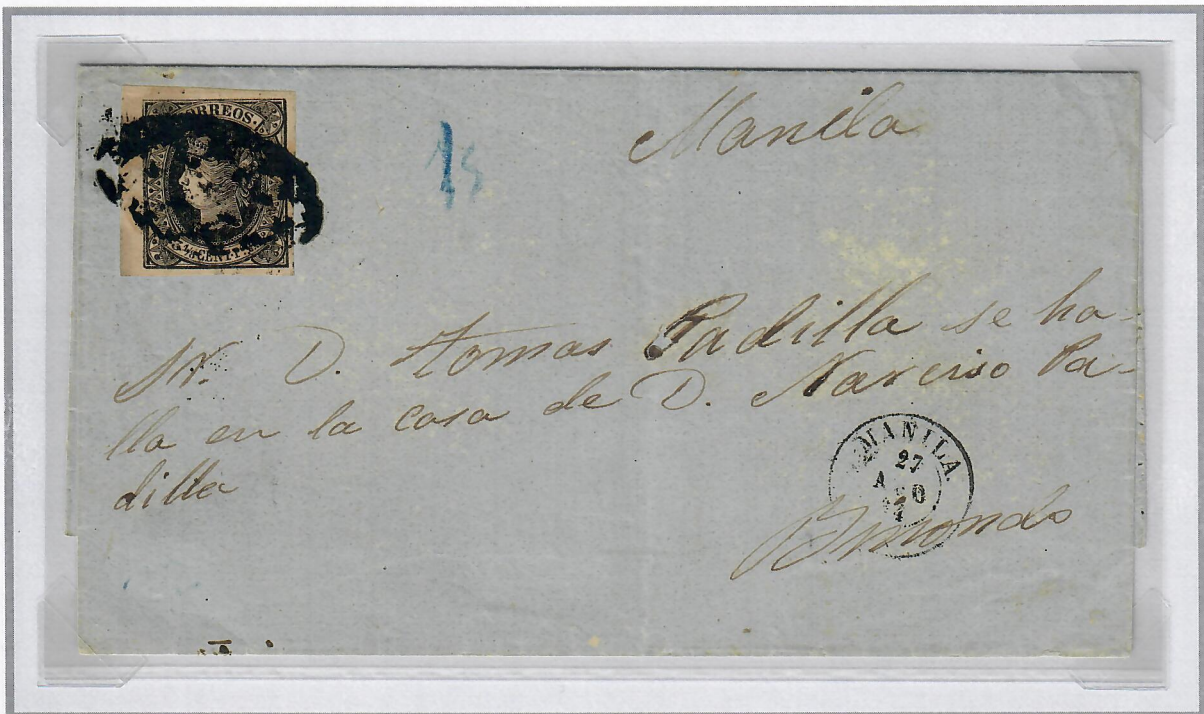 CORREOS.
3 1/8 CENT. P
Manila
Sr. D. tomas Padilla se ha-
lla en la casa de D. Narciso Pa-
dilla
MANILA
27
AGO
Binondo